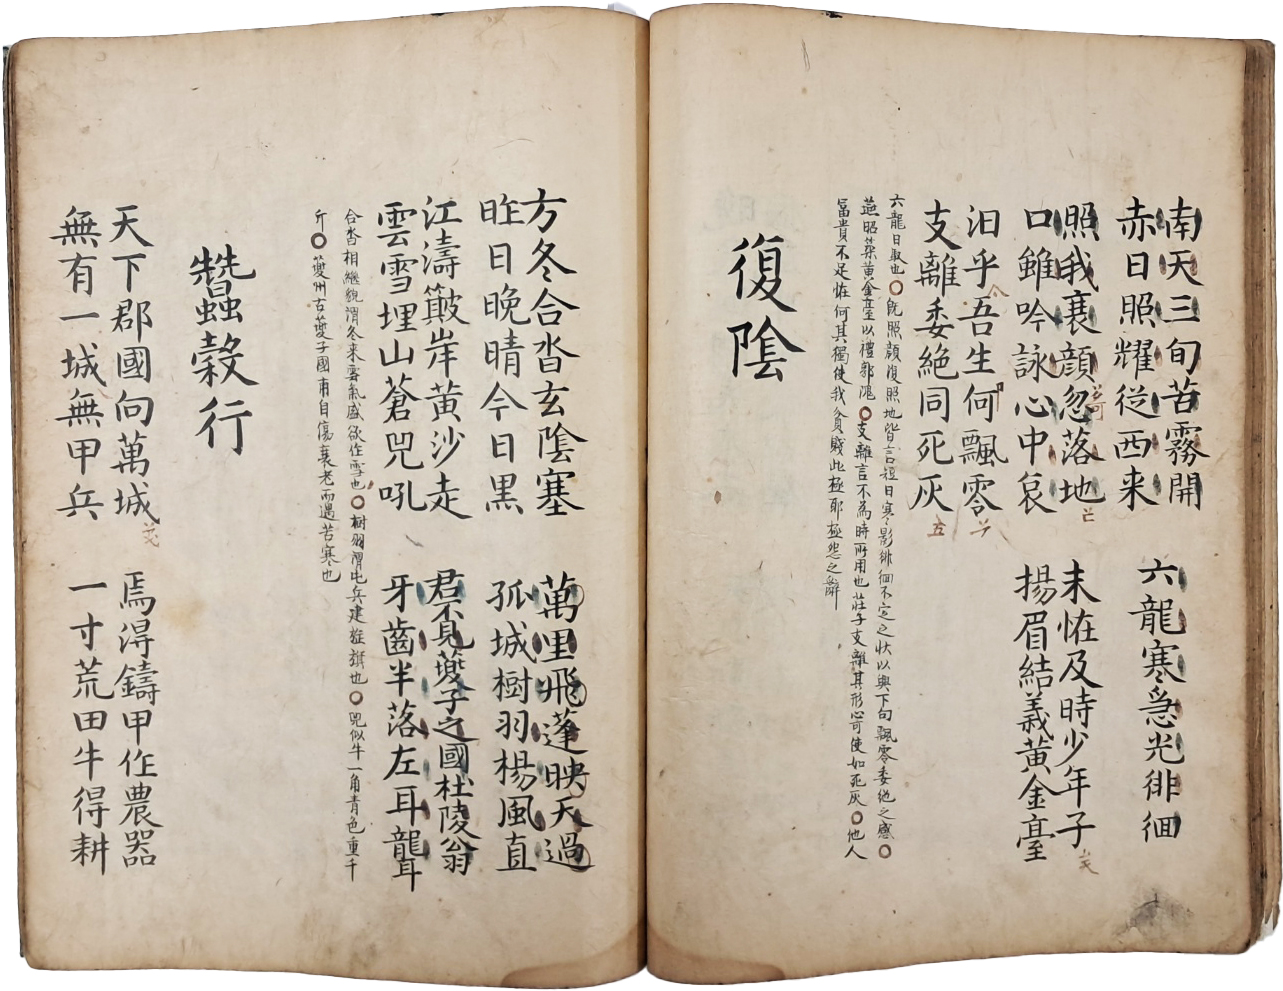 南天三旬苦霧開
赤日照耀従西来 六龍寒急光徘徊
照我衰顔忽落地
口雖吟詠心中哀 末恠及時少年子
揚眉結義黄金臺
汨乎吾生何飄零
支離委絶同死灰
六龍日馭也○既照顔復照地皆言短日寒影徘徊不定之状以興下句飄零委絶之感○
燕昭築黄金臺以禮郭隗○支離言不為時所用也莊子支離其形心可使如死灰○他人
冨貴不足恠何其獨使我貧賤此極耶極怨之辭
復陰
方冬合沓玄陰塞
昨日晩晴今日黒 萬里飛蓬映天過
孤城樹羽楊風直
江濤簸岸黄沙走
雲雪埋山蒼兕吼 君不見夔子之國杜陵翁
牙齒半落左耳聾
合沓相繼貌謂冬来雲氣盛欲作雪也○樹羽謂屯兵建旌旗也○兕似牛一角青色重千
斤○夔州古夔子國甫自傷衰老而遇苦寒也
蠶穀行
天下郡國向萬城 焉得鑄甲作農器
無有一城無甲兵 一寸荒田牛得耕